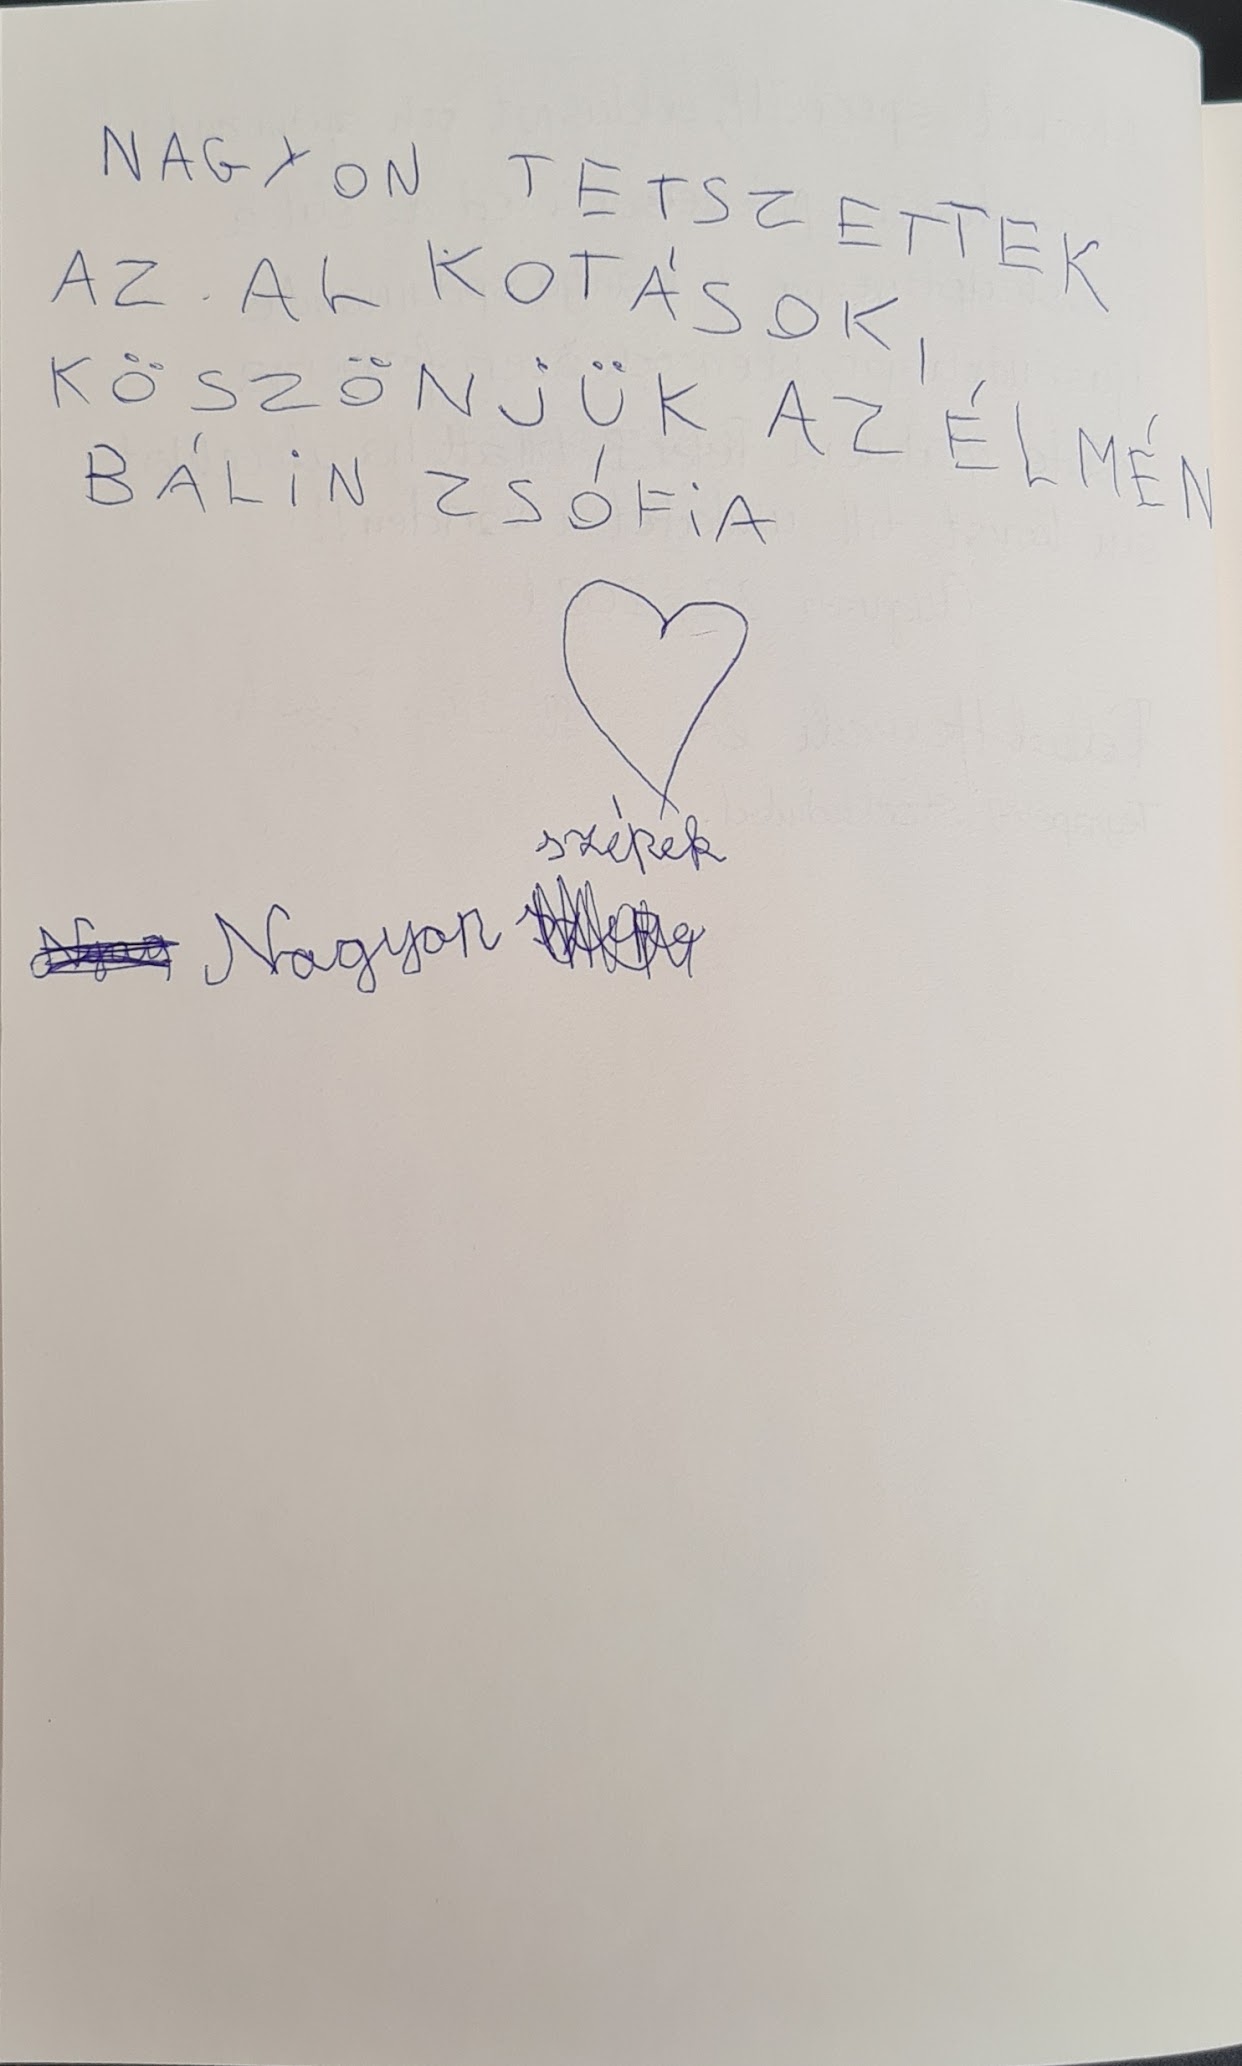 NAGYON TETSZETTEK
AZ ALKOTÁSOK,
KÖSZÖNJÜK AZ ÉLMÉN
BÁLiN ZSÓFiA
szépek
Nagyon